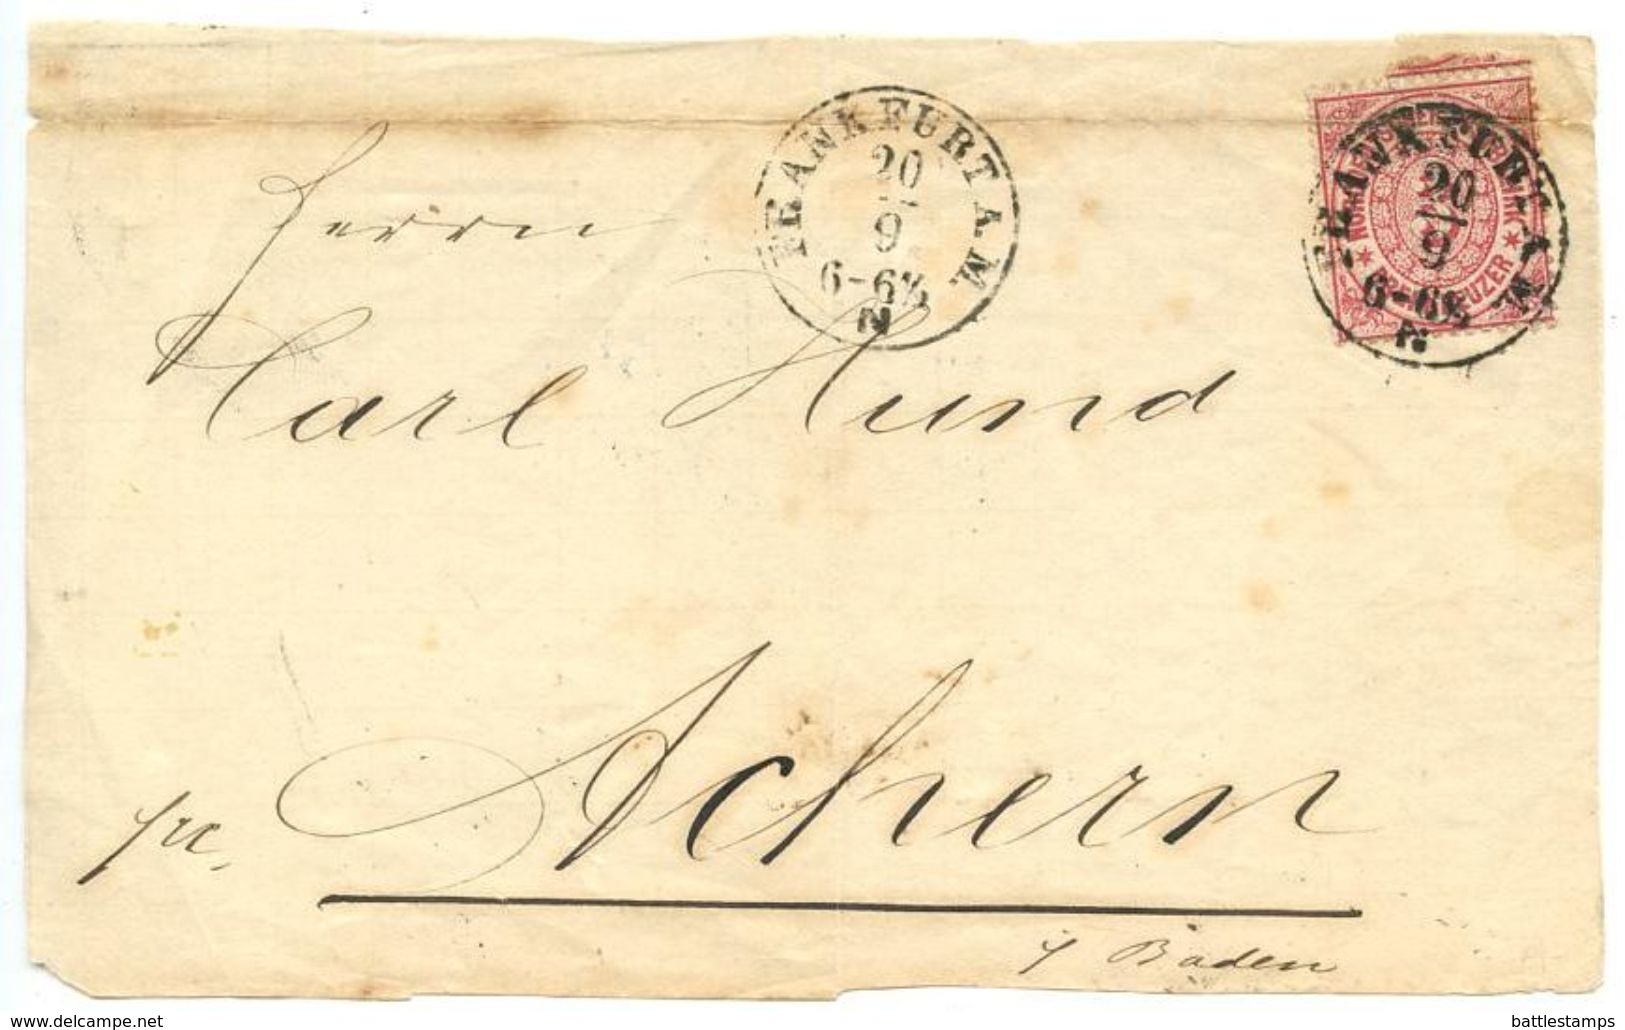 FRANKFURT A.M.
20
9
6-6½
N
FRANKFURT A.M.
20
9
6-6½
N
KREUZER
Herrn
Carl Hund
Achern
Baden
www.delcampe.net
battlestamps